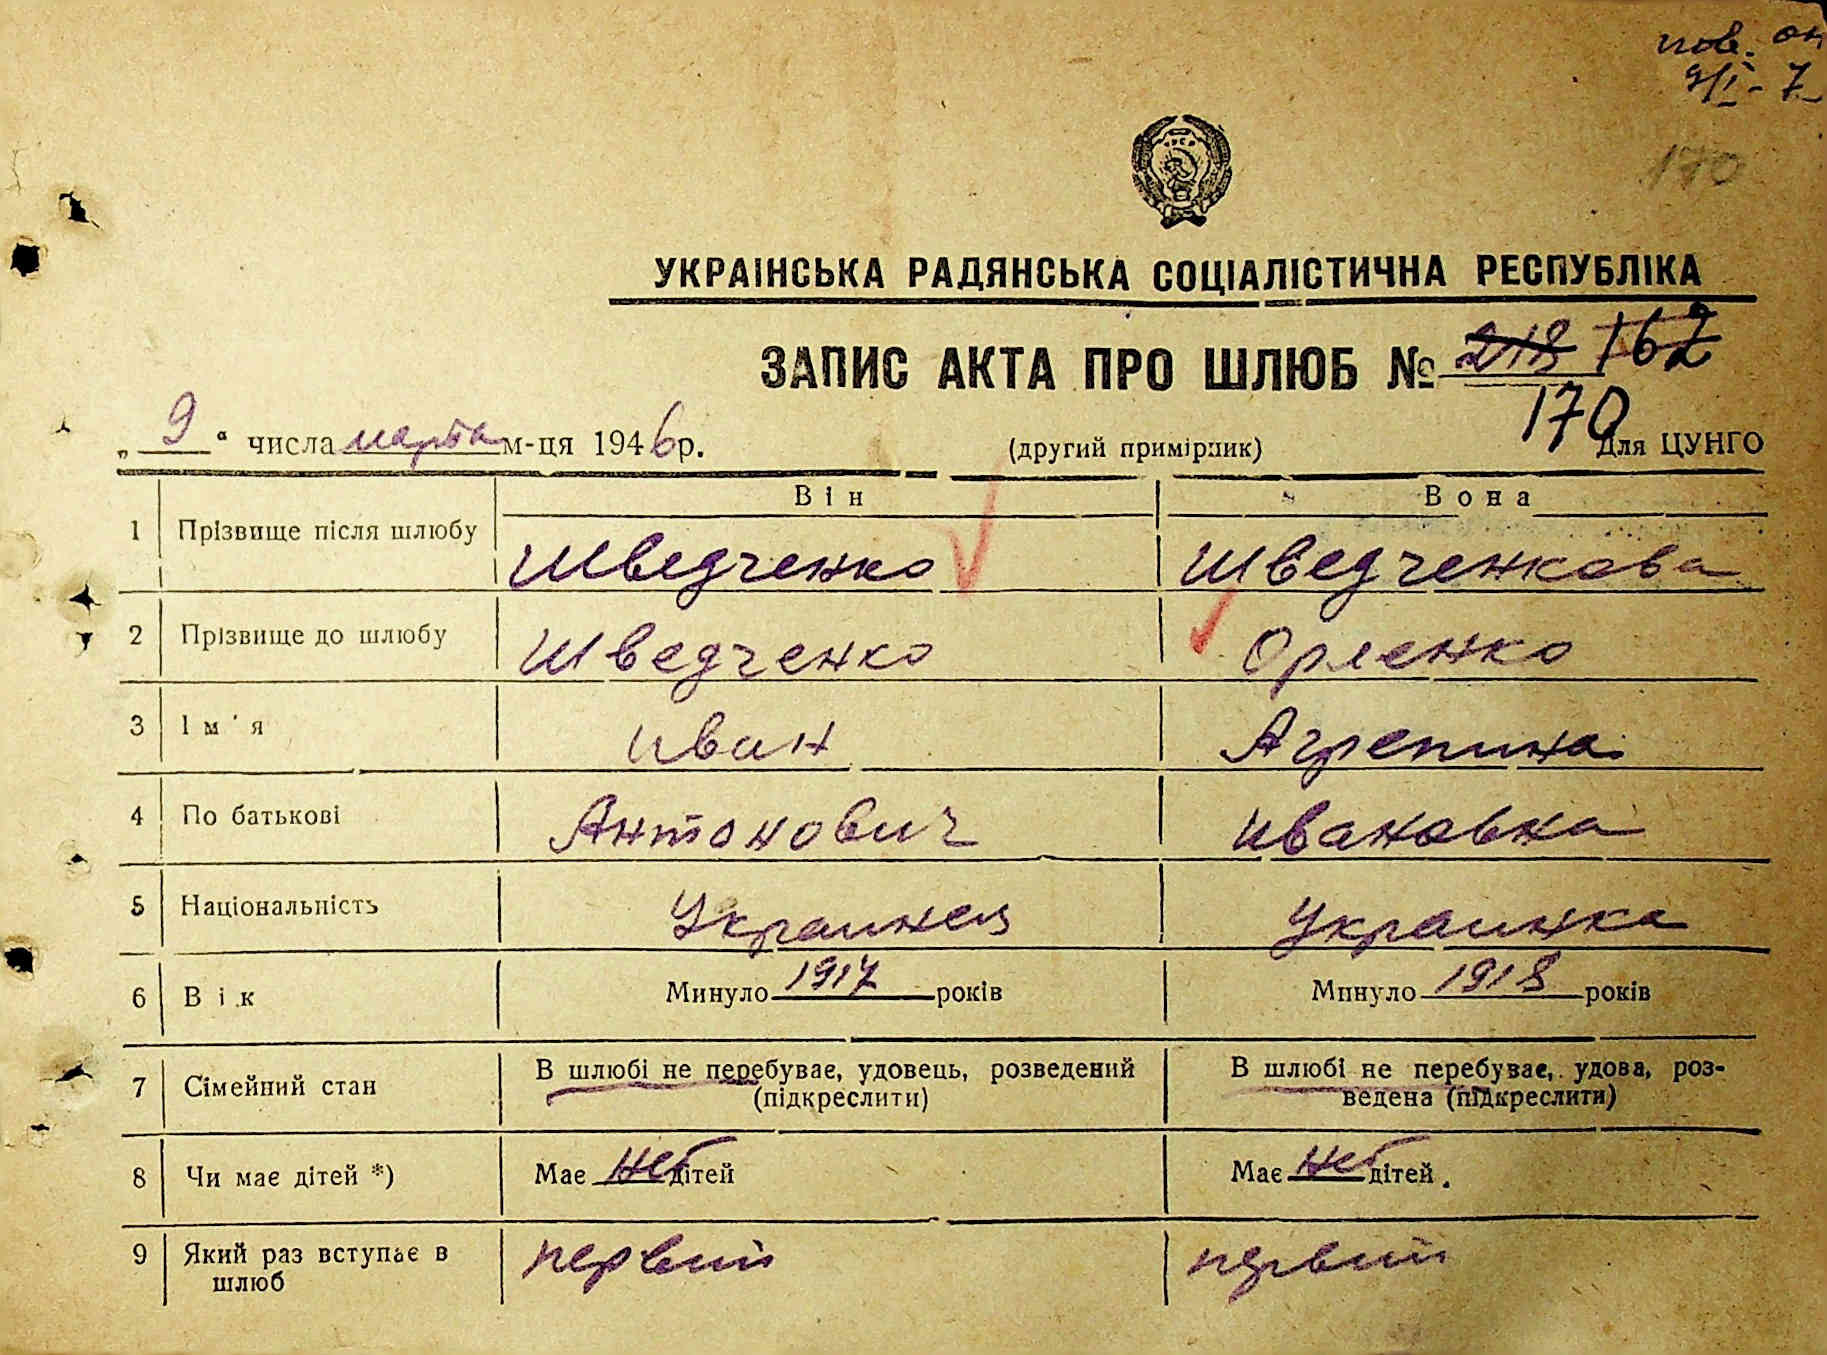 пов.
9/I - 7
170
УКРАІНСЬКА РАДЯНСЬКА СОЦІАЛІСТИЧНА РЕСПУБЛІКА
ЗАПИС АКТА ПРО ШЛЮБ № 218 162
170
„ 9 “ числа марта м-ця 1946 р. (другий примірник) Для ЦУНГО
Він Вона
1 Прізвище після шлюбу Шведченко Шведченкова
2 Прізвище до шлюбу Шведченко Орленко
3 Ім'я Иван Агрепина
4 По батькові Антонович Ивановна
5 Національність Украинец Украинка
6 Вік Минуло 1917 років Минуло 1918 років
7 Сімейний стан В шлюбі не перебуває, удовець, розведений (підкреслити) В шлюбі не перебуває, удова, роз-
ведена (підкреслити)
8 Чи має дітей *) Має нет дітей Має нет дітей.
9 Який раз вступає в шлюб первий первий